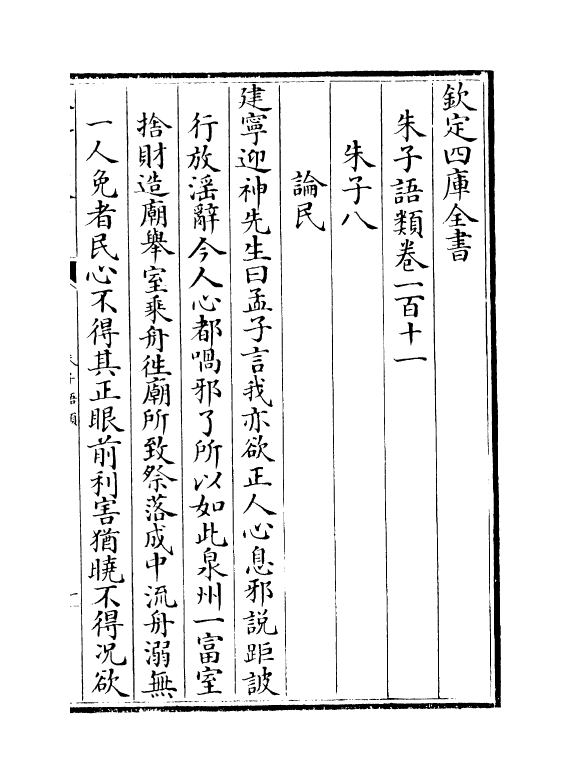 欽定四庫全書
朱子語類卷一百十一
朱子八
論民
建寧迎神先生曰孟子言我亦欲正人心息邪說距詖
行放淫辭今人心都喎邪了所以如此泉州一富室
捨財造廟舉室乘舟徃廟所致祭落成中流舟溺無
一人免者民心不得其正眼前利害猶曉不得况欲
朱子語類
一